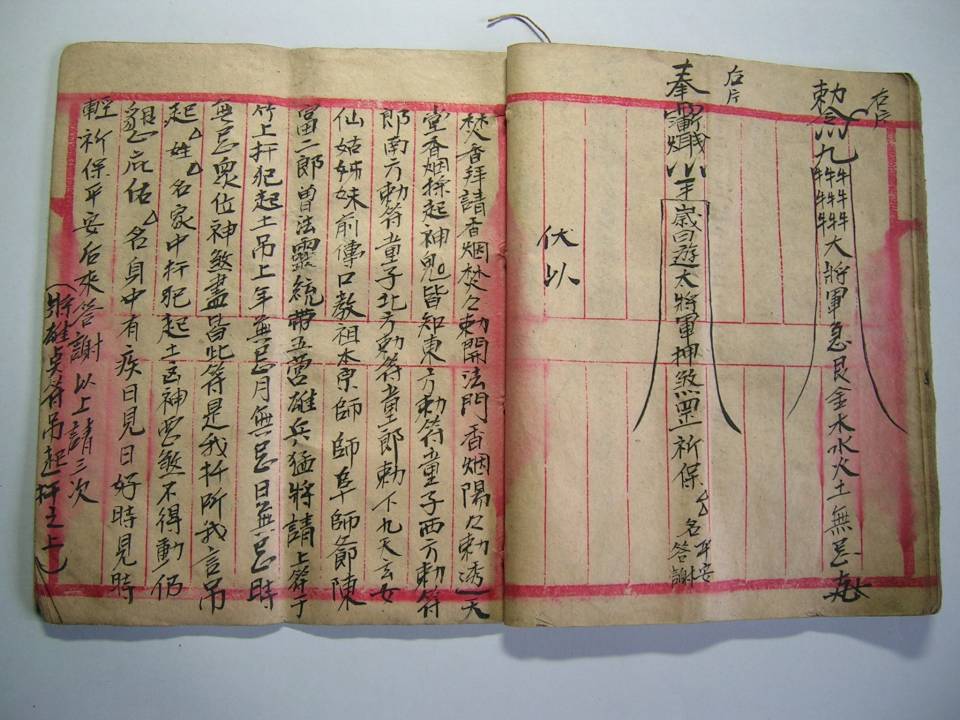 右片
勅 九 大將軍急良金木水火土無忌
右片
奉 歲日遊太將軍押煞罡祈保 名平安答謝
伏以
焚香拜請香烟焚々勅開法門香烟陽々勅透天
堂香烟採起神鬼皆知東方勅符童子西方勅符
郎南方勅符童子北方勅符童郎勅下九天玄女
仙姑姊妹前傳口教祖本宗師師阜師爺陳
富二郎曾法靈統帶五营雄兵猛將請上符于
竹上扦犯起土吊上年無忌月無忌日無忌時
無忌眾位神煞盡皆此符是我扦所我言吊
起厶姓厶名家中扦犯起土凶神惡煞不得動仍
庇佑厶名身中有疾日見日好時見時
輕祈保平安后來答謝以上請三次
(將雄 符吊起扦之上)